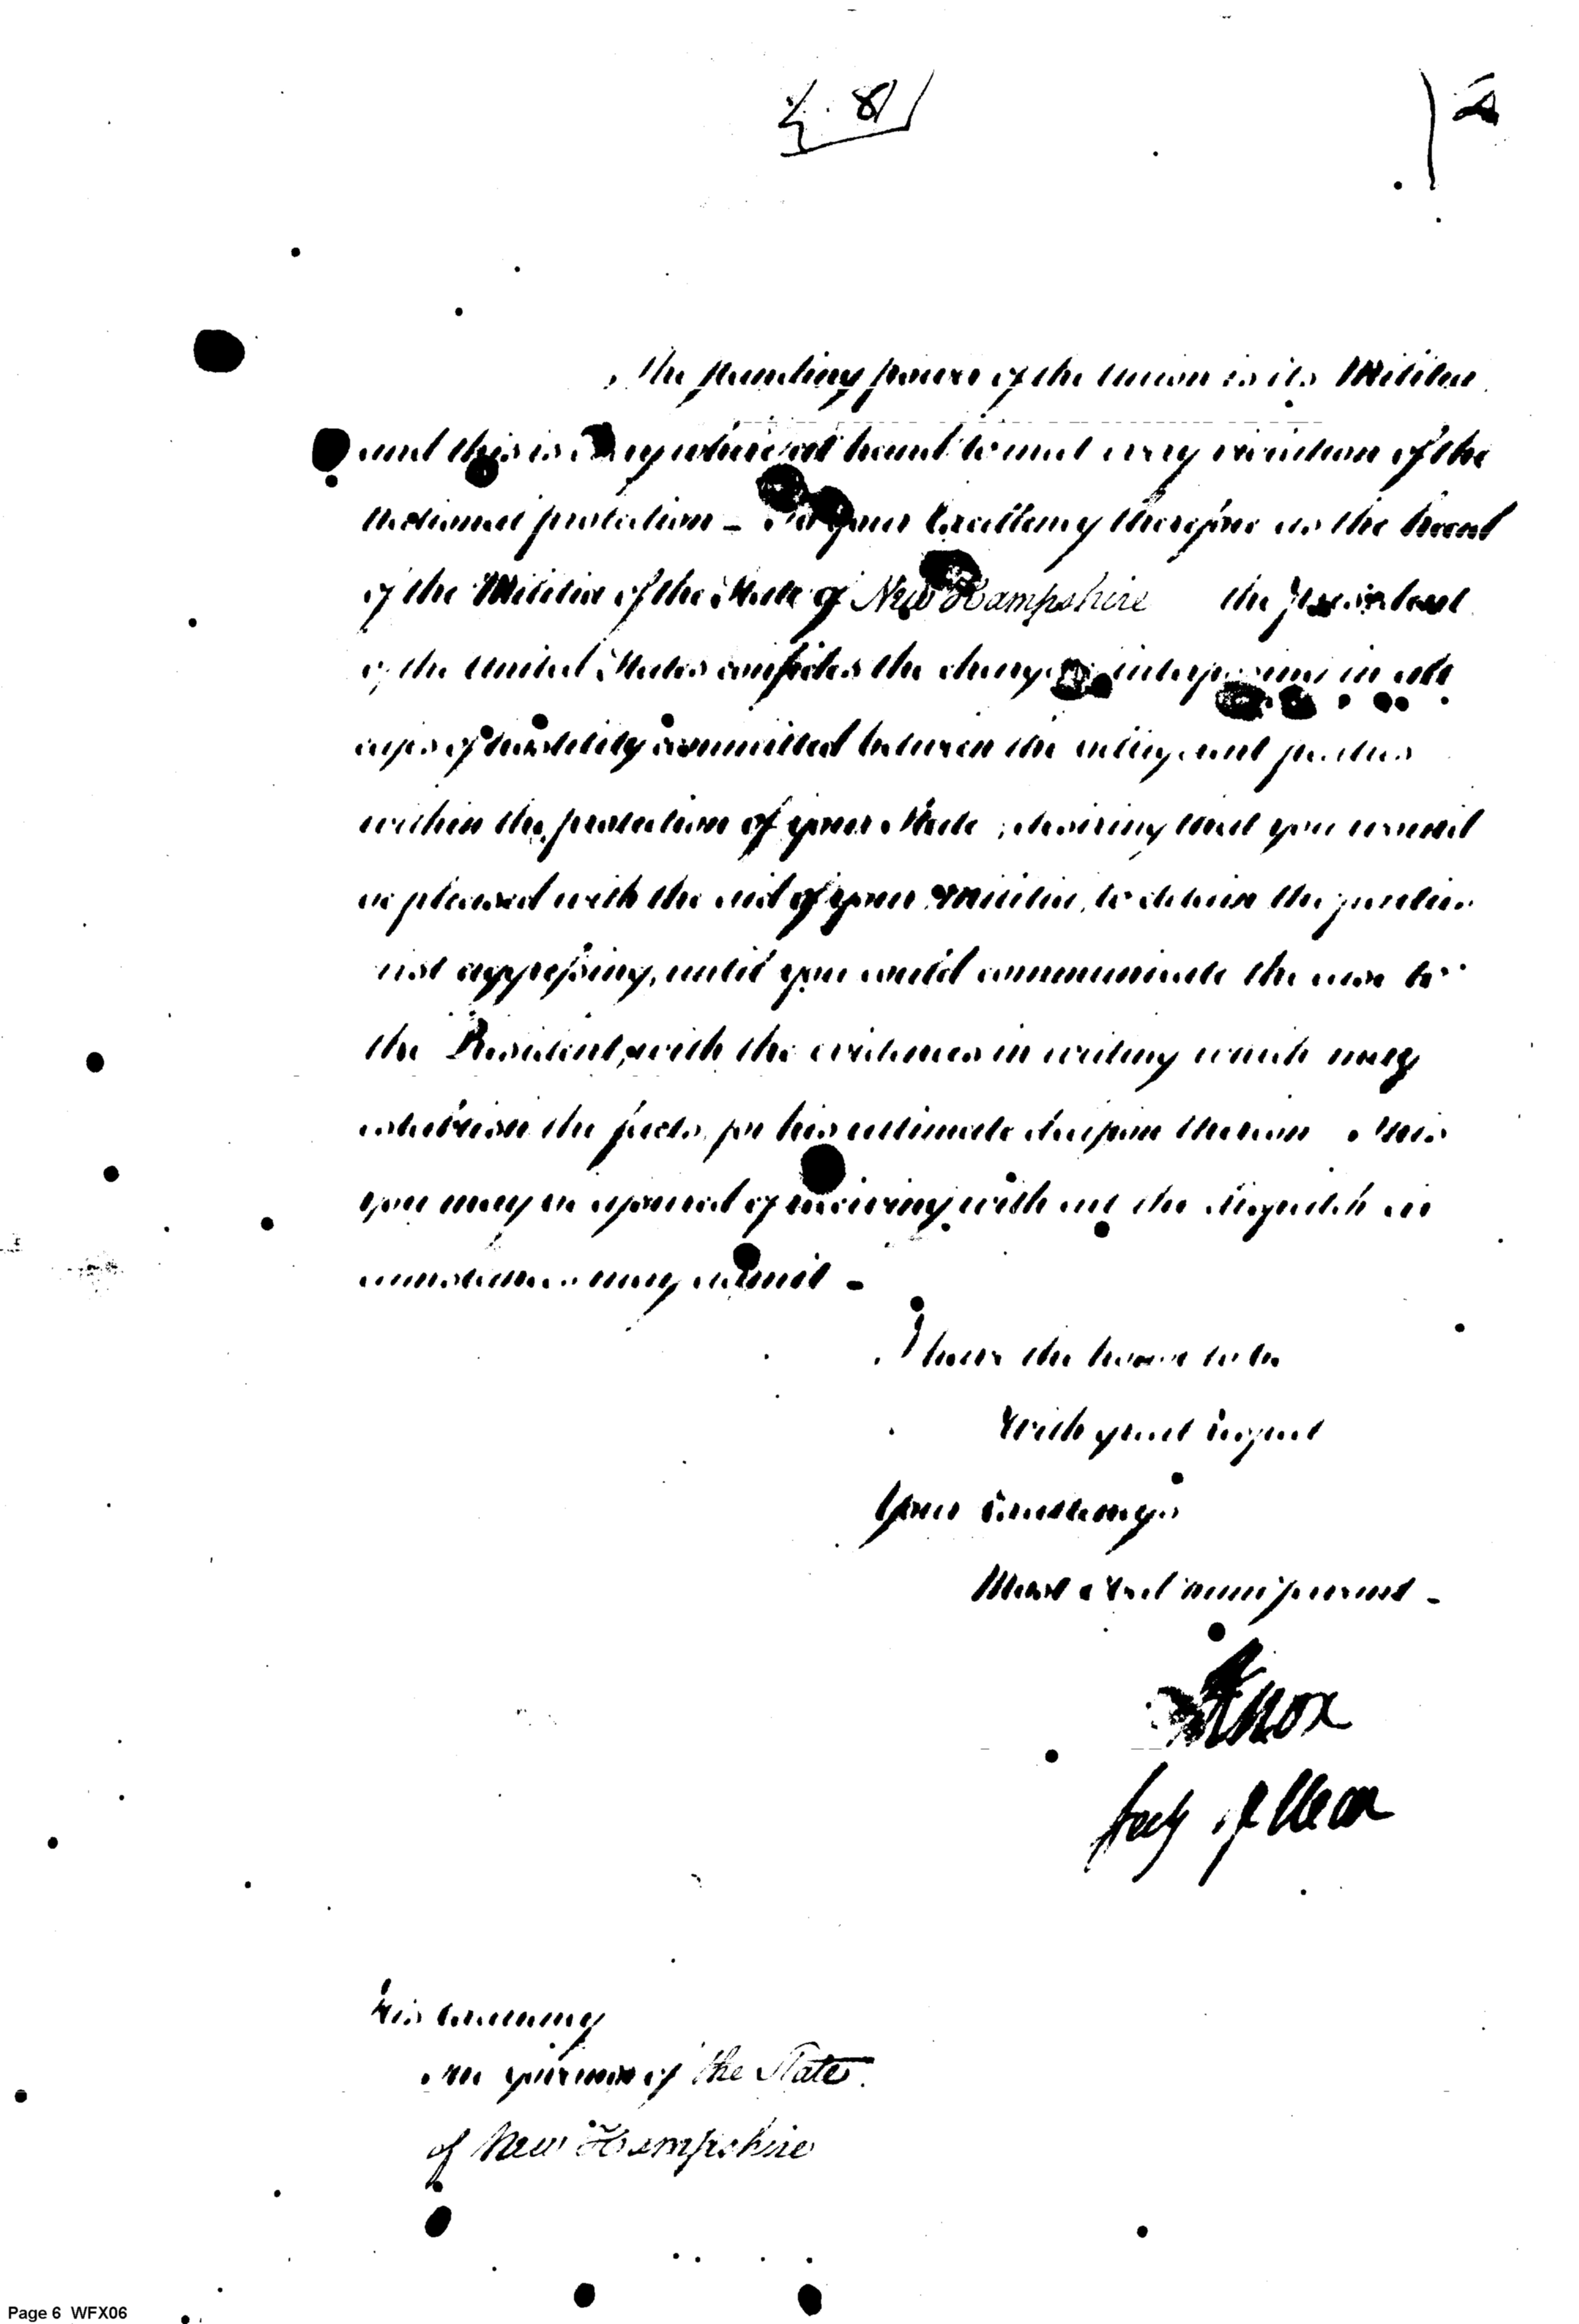 81
2
The standing power of the Union is its Militia
and this is every where at hand to meet every violation of the
national protection - To your Excellency therefore as the head
of the Militia of the State of New Hampshire the President
of the United States confides the charge of interposing in all
cases of hostility committed between the belligerent parties
within the protection of your State, desiring that you would
be pleased with the aid of your Militia, to detain the parties
first aggressing, until you could communicate the case to
the President, with the evidence in writing which may
establish the facts, for his ultimate decision thereon. This
you may be assured of receiving with all the dispatch
circumstances may admit -
I have the honor to be
With great respect
Your Excellency's
Most Obed
Knox
Secy of War
His Excellency
The Governor of the State
of New Hampshire
Page 6 WFX06